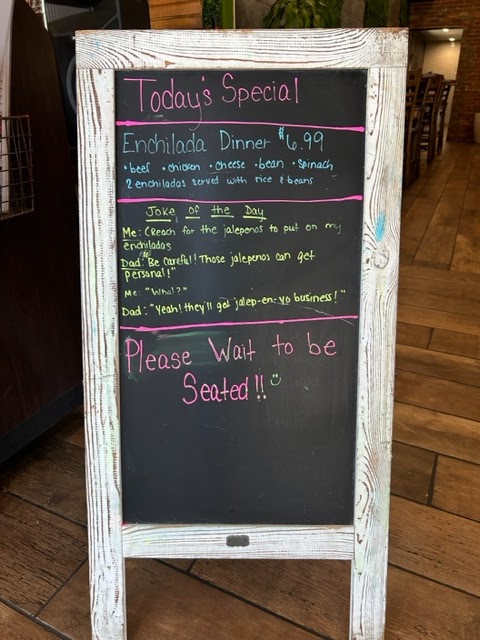 Today's Special
Enchilada Dinner $6.99
• beef • chicken • cheese • bean • spinach
2 enchiladas served with rice & beans
Joke of the Day
Me: (Reach for the jalepenos to put on my
enchiladas
Dad: "Be careful! Those jalepenos can get
personal!"
Me: "What?"
Dad: "Yeah! they'll get jalep-en-yo business!"
Please Wait to be
Seated!!